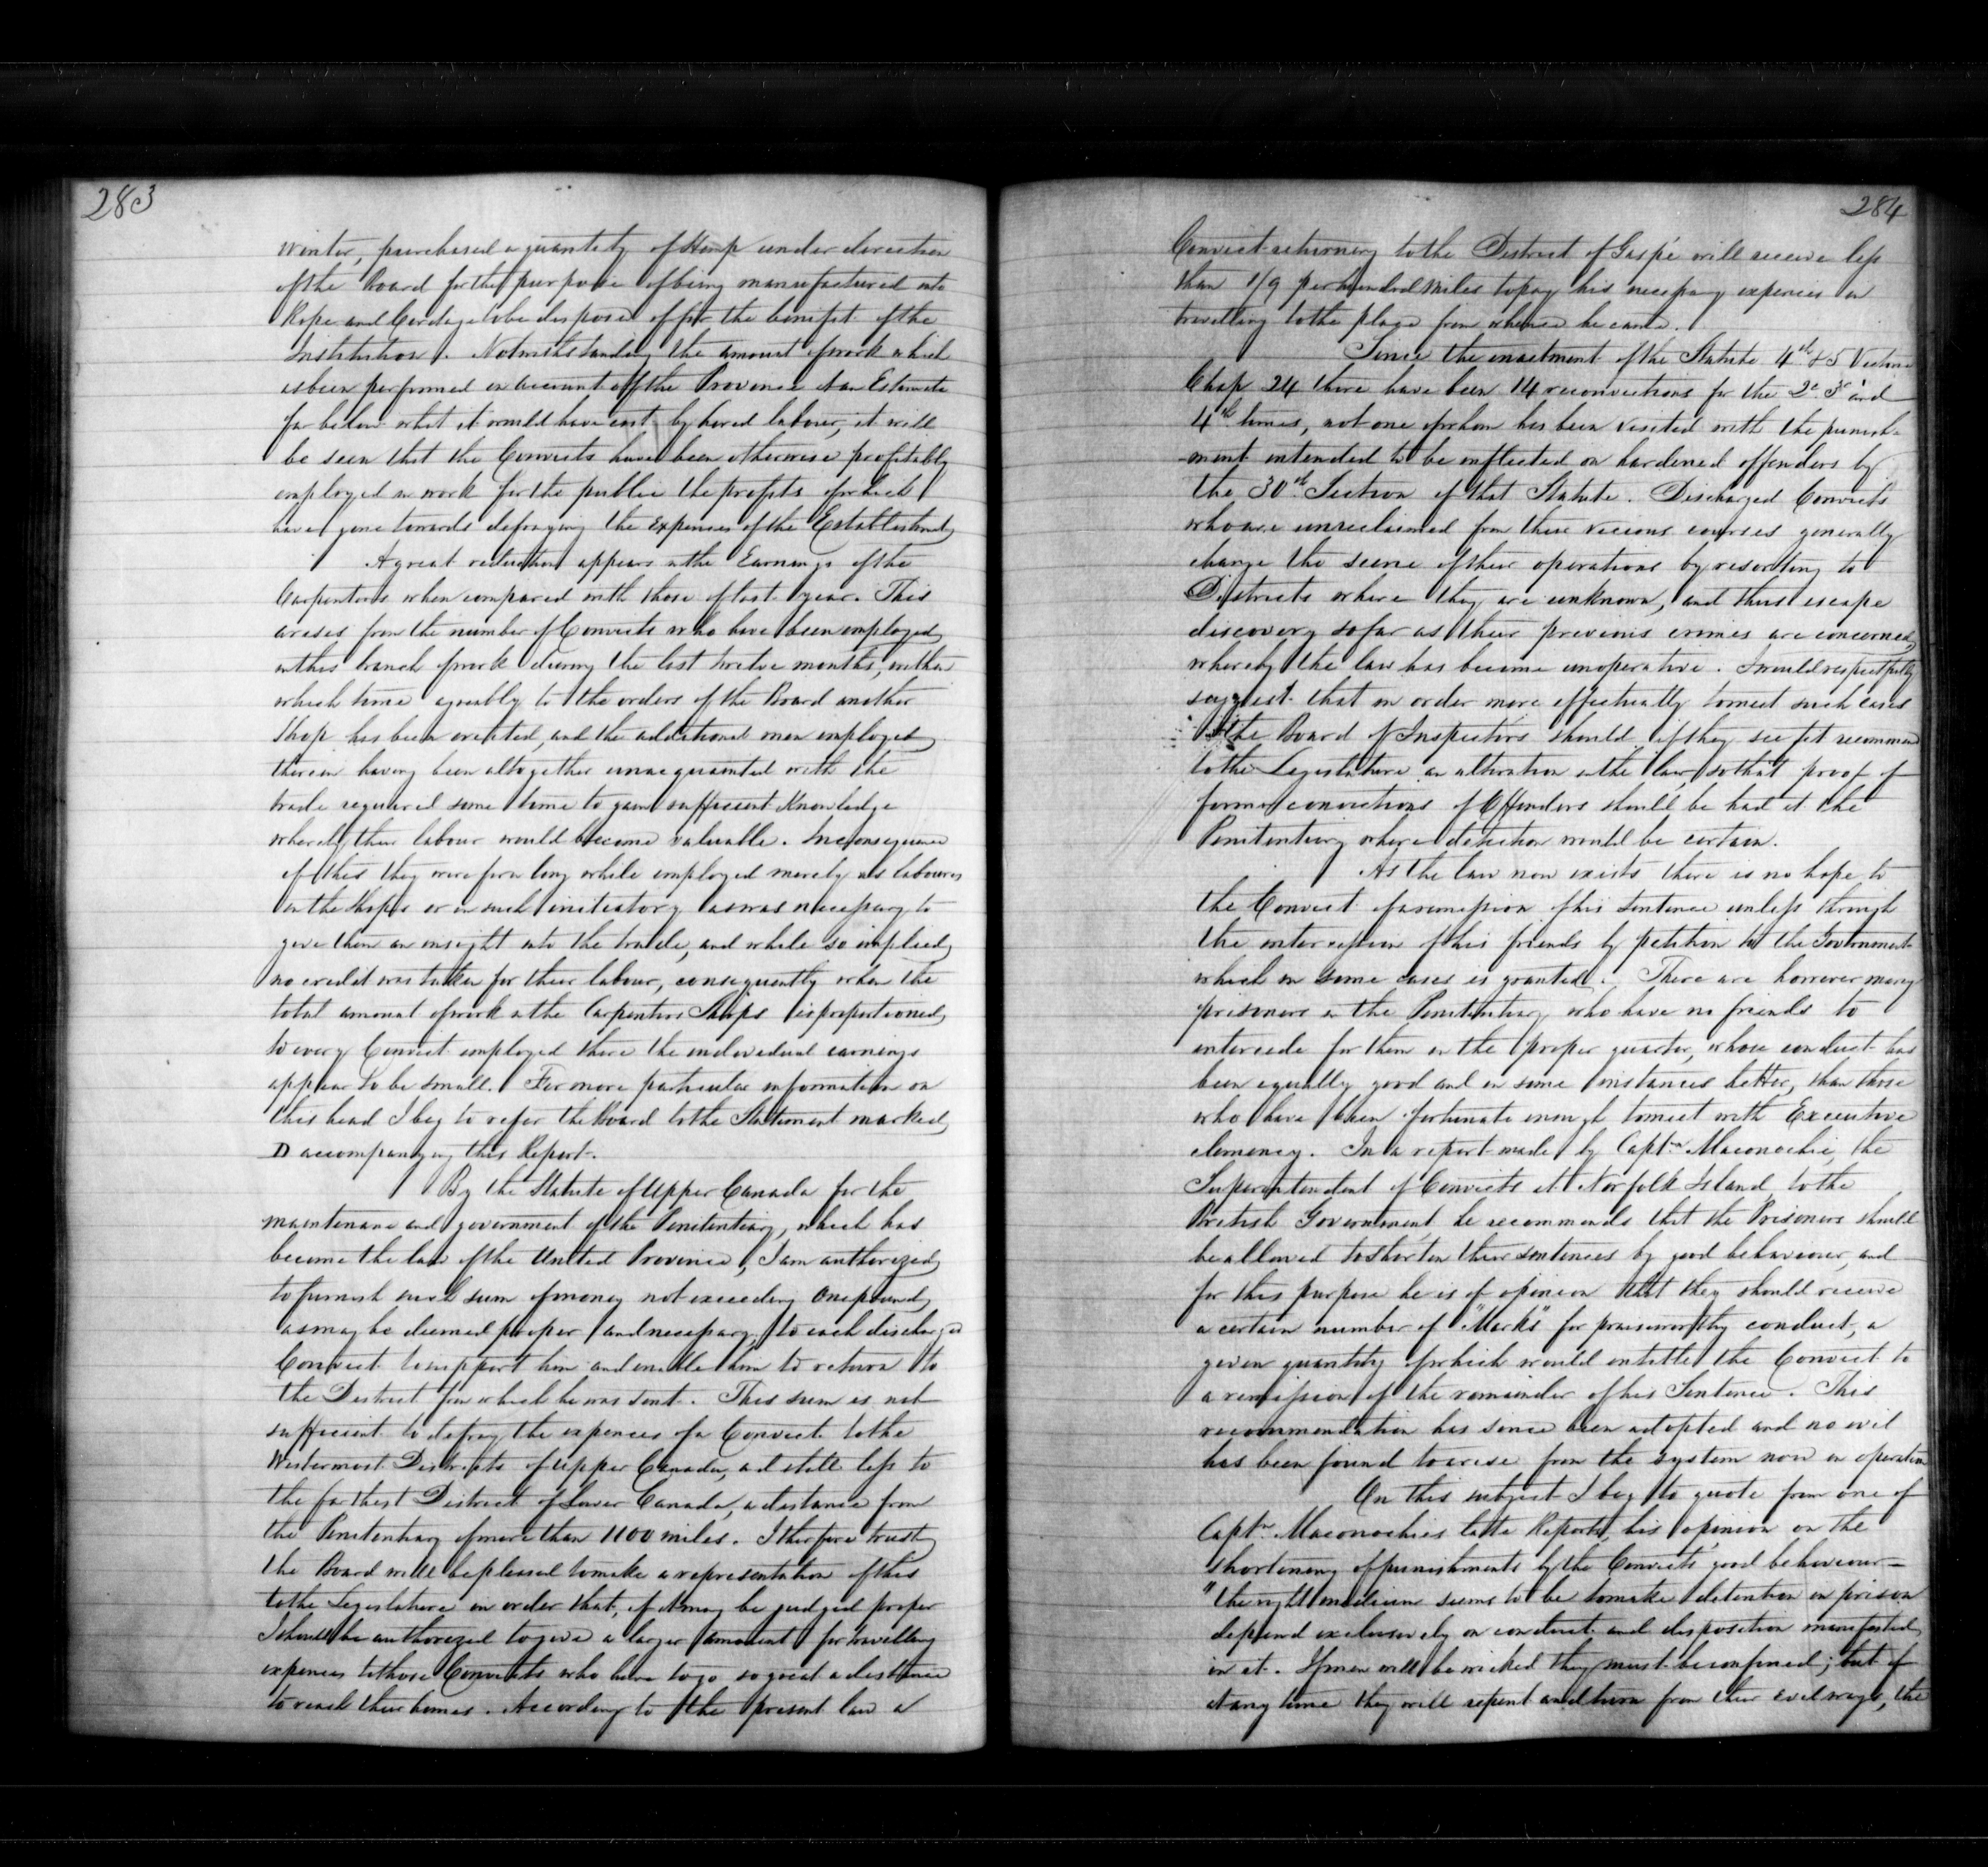 283
winter, purchased a quantity of Hemp under direction
of the Board for the purpose of being manufactured into
Rope and Cordage to be disposed of for the benefit of the
Institution. Notwithstanding the amount of work which
as been performed on account of the Province at an Estimate
far below what it would have cost by hired labour, it will
be seen that the Convicts have been otherwise profitably
employed in work for the public the profits of which
have gone towards defraying the expenses of the Establishment
A great reduction appears in the Earnings of the
Carpenters when compared with those of last year. This
arises from the number of Convicts who have been employed
in this branch of work during the last twelve months, within
which time agreably to the orders of the Board another
Shop has been erected, and the additional men employed
therein having been altogether unacquainted with the
trade required some time to gain sufficient Knowledge
whereby their labour would become valuable. In consequence
of this they were for a long while employed merely as labourers
in the Shops or in such initiatory as was necessary to
give them an insight into the trade, and while so implied
no credit was taken for their labour, consequently when the
total amount of work in the Carpenters Shops is proportioned
to every Convict employed there the individual earnings
appear to be small. For more particular information on
this head I beg to refer the Board to the Statement marked
D accompanying this Report.
By the Statute of Upper Canada for the
maintenance and government of the Penitentiary, which has
become the law of the United Province, I am authorized
to furnish such sum of money not exceeding One pound
as may be deemed proper and necessary to each discharged
Convict to support him and enable him to return to
the District from which he was sent. This sum is not
sufficient to defray the expences of a Convict to the
Westernmost Districts of Upper Canada, and still less to
the farthest District of Lower Canada, a distance from
the Penitentiary of more than 1100 miles. I therefore trust
the Board will be pleased to make a representation of this
to the Legislature in order that, if it may be judged proper
I should be authorized to give a larger amount for travelling
expences to those Convicts who have to go so great a distance
to reach their homes. According to the present law a
284
Convict returning to the District of Gaspé will receive less
than 1/9 per hundred miles to pay his necessary expences in
travelling to the place from whence he came.
Since the enactment of the Statute 4th & 5 Victoria
Chap 24 there have been 14 reconvictions for the 2d 3d and
4th times, not one of whom has been visited with the punish-
ment intended to be inflicted on hardened offenders by
the 30th Section of that Statute. Discharged Convicts
who are unreclaimed from their vicious courses generally
change the scene of their operations by resorting to
Districts where they are unknown, and thus escape
discovery so far as their previous crimes are concerned,
whereby the law has become unoperative. I would respectfully
suggest that in order more effectually to meet such cases
the Board of Inspectors should if they see fit recommend
to the Legislature an alteration in the law, so that proof of
former convictions of Offenders should be had at the
Penitentiary where detection would be certain.
As the law now exists there is no hope to
the Convict of a remission of his sentence unless through
the intercession of his friends by petition to the Government
which in some cases is granted. There are however many
prisoners in the Penitentiary who have no friends to
intercede for them in the proper quarter, whose conduct has
been equally good and in some instances better, than those
who have been fortunate enough to meet with Executive
clemency. In a report made by Captn Maconochie, the
Superintendent of Convicts at Norfolk Island, to the
British Government, he recommends that the Prisoners should
be allowed to shorten their sentences by good behaviour, and
for this purpose he is of opinion that they should receive
a certain number of "Marks" for praiseworthy conduct, a
given quantity of which would entitle the Convict to
a remission of the remainder of his Sentence. This
recommendation has since been adopted and no evil
has been found to arise from the system now in operation
On this subject I beg to quote from one of
Captn Maconochies late Reports, his opinion on the
shortening of punishments by the Convicts' good behaviour—
"the right medium seems to be to make detention in prison
depend exclusively on conduct and disposition manifested
in it. If men will be wicked they must be confined; but if
at any time they will repent and turn from their evil ways, the